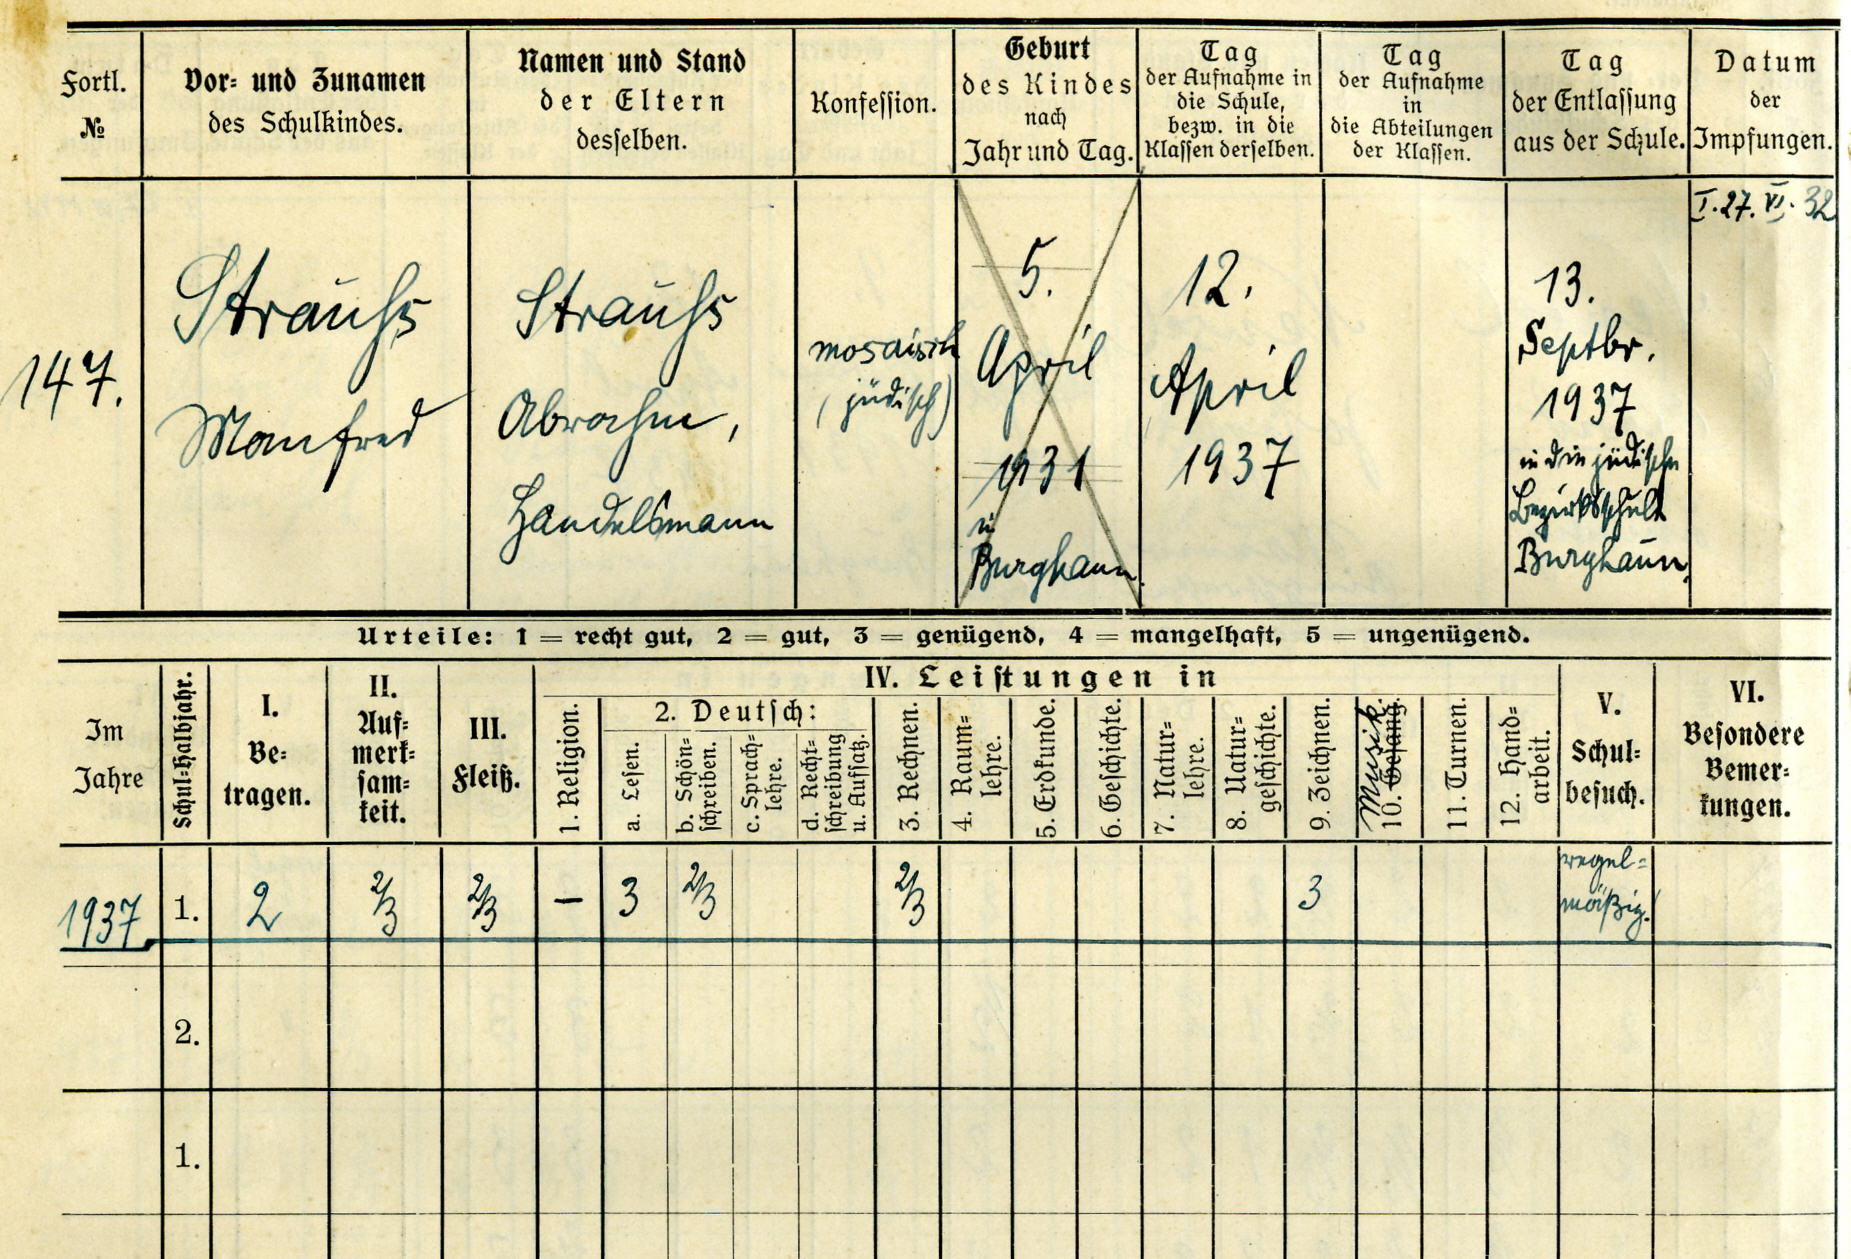 Fortl.
№
Vor- und Zunamen
des Schulkindes.
Namen und Stand
der Eltern
desselben.
Konfession.
Geburt
des Kindes
nach
Jahr und Tag.
Tag
der Aufnahme in
die Schule,
bezw. in die
Klassen derselben.
Tag
der Aufnahme
in
die Abteilungen
der Klassen.
Tag
der Entlassung
aus der Schule.
Datum
der
Impfungen.
147.
Strauhs
Manfred
Strauhs
Abrahm,
Handelsmann
mosaisch
(jüdisch)
5.
April
1931
in
Burghaun.
12.
April
1937
13.
Septbr.
1937
in die jüdische
Bezirksschule
Burghaun.
I. 27. VI. 32
Urteile: 1 = recht gut, 2 = gut, 3 = genügend, 4 = mangelhaft, 5 = ungenügend.
Im
Jahre
Schul-Halbjahr.
I.
Be-
tragen.
II.
Auf-
merk-
sam-
keit.
III.
Fleiß.
IV. Leistungen in
1. Religion.
2. Deutsch:
a. Lesen.
b. Schön-
schreiben.
c. Sprach-
lehre.
d. Recht-
schreibung
u. Aufsatz.
3. Rechnen.
4. Raum-
lehre.
5. Erdkunde.
6. Geschichte.
7. Natur-
lehre.
8. Natur-
geschichte.
9. Zeichnen.
Musik.
10. Gesang.
11. Turnen.
12. Hand-
arbeit.
V.
Schul-
besuch.
VI.
Besondere
Bemer-
kungen.
1937 1. 2 2/3 2/3 – 3 2/3 2/3 3 regel-
mäßig.
2.
1.